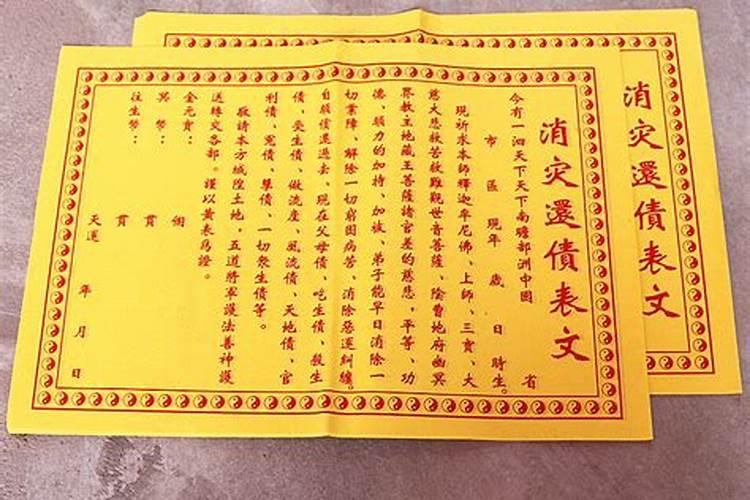 消灾還債表文
今有一泗天下天下南贍部洲中國 省
市 區 現年 歲 日 時生。
現祈求本師釋迦牟尼佛、上師、三寶、大
慈大悲救苦救難觀世音菩薩、陰曹地府幽冥
界教主地藏王菩薩諸官差的慈悲，平等、功
德、願力的加持、加被、弟子能早日消除一
切業障、解除一切窮困病苦、消除惡運糾纏。
自願償還過去、現在父母債、吃生債、殺生
債、受生債、做流産、風流債、天地債、官
利債、冤債、孽債、一切衆生債等。
敬請本方城隍土地，五道將軍護法善神護
送轉交各部。謹以黄表爲證。
金元寶： 個
冥 幣： 貫
往生幣： 貫
天運 年 月 日
消灾還債表文